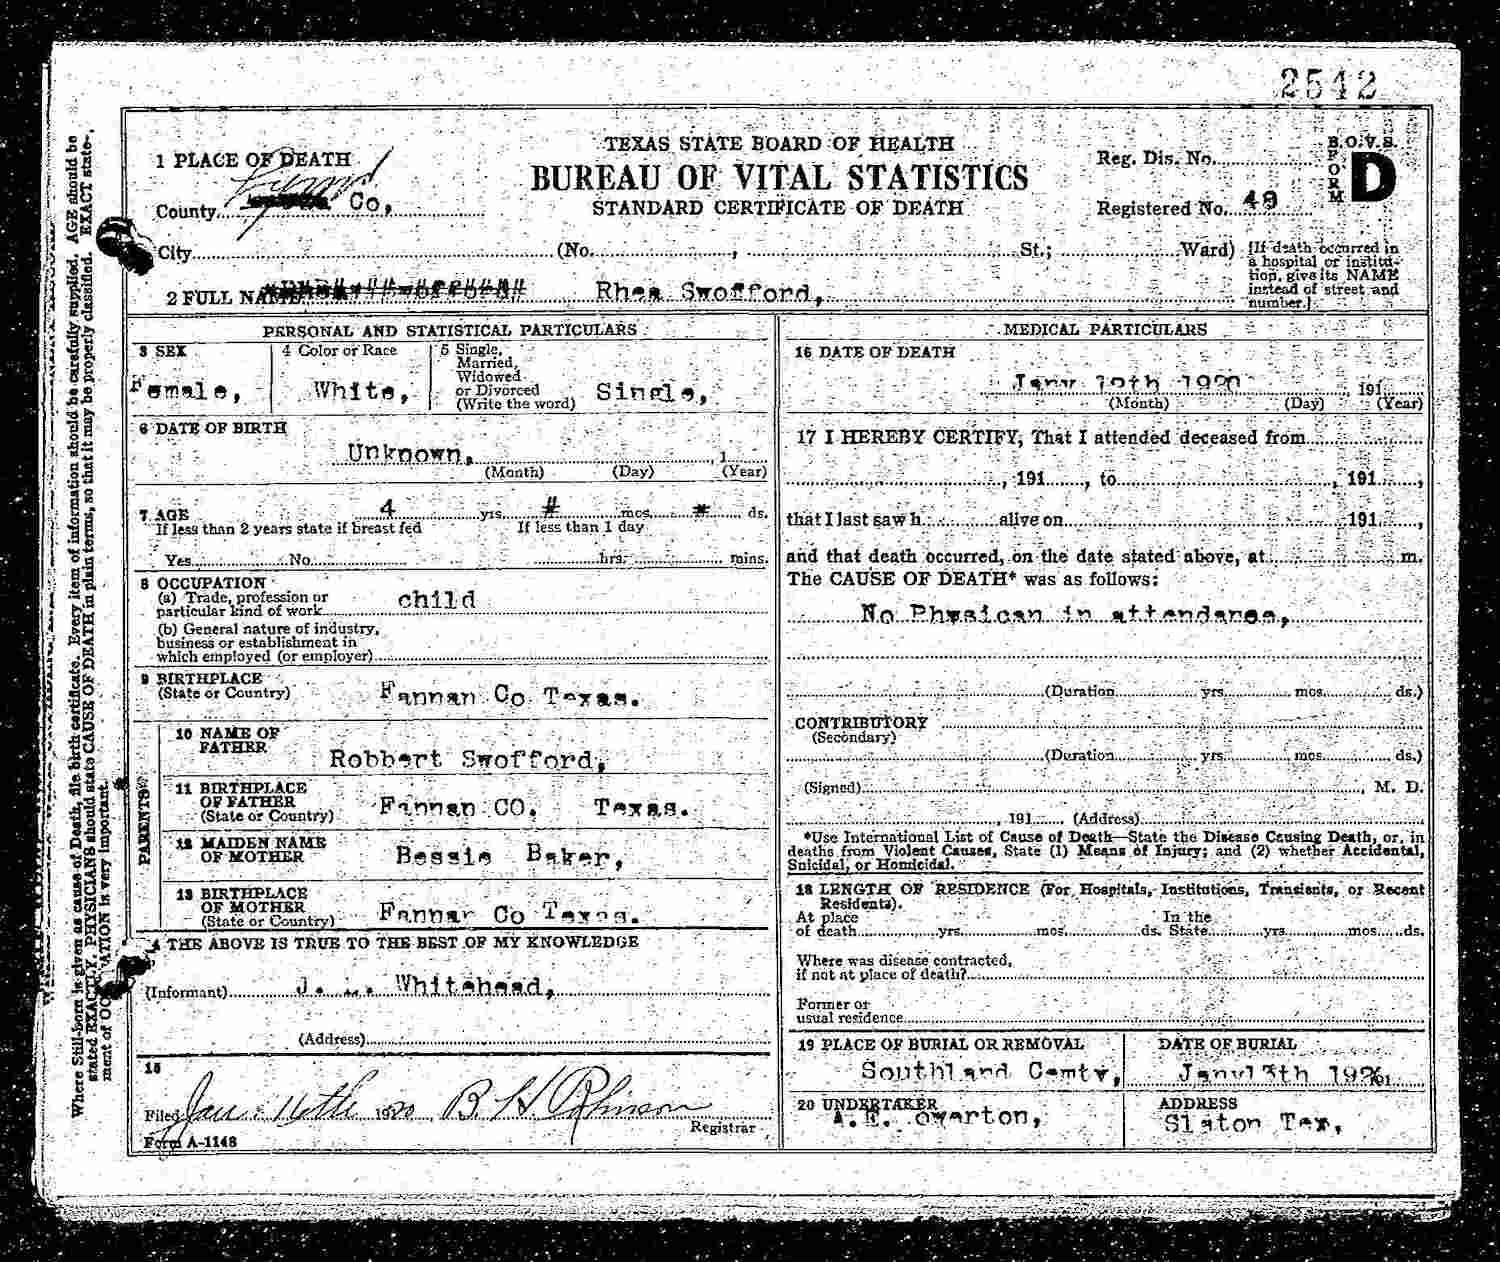 2542
TEXAS STATE BOARD OF HEALTH
BUREAU OF VITAL STATISTICS
STANDARD CERTIFICATE OF DEATH
1 PLACE OF DEATH
County Co,
Reg. Dis. No.
Registered No. 49
B.O.V.S.
FORM D
City (No. , St.; Ward)
[If death occurred in
a hospital or institu-
tion, give its NAME
instead of street and
number.]
2 FULL NAME Rhea Swofford,
PERSONAL AND STATISTICAL PARTICULARS
3 SEX
Female,
4 Color or Race
White,
5 Single,
Married,
Widowed
or Divorced
(Write the word) Single,
6 DATE OF BIRTH
Unknown, , 1
(Month) (Day) (Year)
7 AGE 4 yrs. # mos. * ds.
If less than 2 years state if breast fed If less than 1 day
Yes No hrs. mins.
8 OCCUPATION
(a) Trade, profession or
particular kind of work child
(b) General nature of industry,
business or establishment in
which employed (or employer)
9 BIRTHPLACE
(State or Country) Fannan Co Texas.
PARENTS
10 NAME OF
FATHER
Robbert Swofford,
11 BIRTHPLACE
OF FATHER
(State or Country) Fannan CO. Texas.
12 MAIDEN NAME
OF MOTHER Bessie Baker,
13 BIRTHPLACE
OF MOTHER
(State or Country) Fannan Co Texas.
THE ABOVE IS TRUE TO THE BEST OF MY KNOWLEDGE
(Informant) J. L. Whitehead,
(Address)
15
Filed Jan. 16th 1920 B. H. Robinson
Registrar
Form A-1148
MEDICAL PARTICULARS
16 DATE OF DEATH
Jany 12th 1920 , 191
(Month) (Day) (Year)
17 I HEREBY CERTIFY, That I attended deceased from
, 191 , to , 191 ,
that I last saw h alive on 191 ,
and that death occurred, on the date stated above, at m.
The CAUSE OF DEATH* was as follows:
No Physican in attendance,
(Duration yrs. mos. ds.)
CONTRIBUTORY
(Secondary)
(Duration yrs. mos. ds.)
(Signed) , M. D.
, 191 (Address)
*Use International List of Cause of Death—State the Disease Causing Death, or, in
deaths from Violent Causes, State (1) Means of Injury; and (2) whether Accidental,
Suicidal, or Homicidal.
18 LENGTH OF RESIDENCE (For Hospitals, Institutions, Transients, or Recent
Residents).
At place In the
of death yrs. mos. ds. State yrs. mos. ds.
Where was disease contracted,
if not at place of death?
Former or
usual residence
19 PLACE OF BURIAL OR REMOVAL
Southland Cemty,
DATE OF BURIAL
Jany 13th 1920
20 UNDERTAKER
A.E. Owerton,
ADDRESS
Slaton Tex,
Where Still-born is given as cause of Death, file birth certificate. Every item of information should be carefully supplied. AGE should be
stated EXACTLY. PHYSICIANS should state CAUSE OF DEATH in plain terms, so that it may be properly classified. EXACT state-
ment of OCCUPATION is very important.